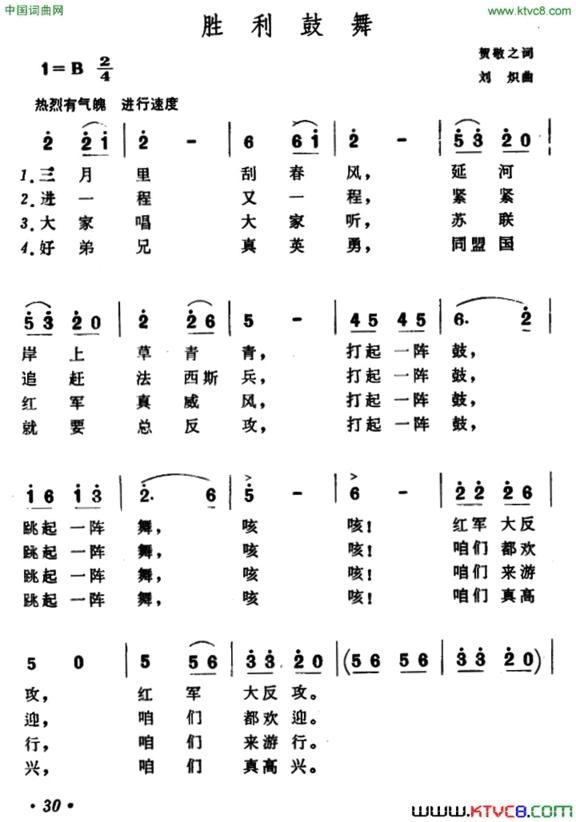 中国词曲网
www.ktvc8.com
胜利鼓舞
1=B 2/4
贺敬之词
刘 炽曲
热烈有气魄 进行速度
2 2 1 | 2 - | 6 6 1 | 2 - | 5 3 2 0 |
1.三月里 刮春风， 延河
2.进一程 又一程， 紧紧
3.大家唱 大家听， 苏联
4.好弟兄 真英勇， 同盟国
5 3 2 0 | 2 2 6 | 5 - | 4 5 4 5 | 6. 2 |
岸上草青青， 打起一阵鼓，
追赶法西斯兵， 打起一阵鼓，
红军真威风， 打起一阵鼓，
就要总反攻， 打起一阵鼓，
1 6 1 3 | 2. 6 | 5 - | 6 - | 2 2 2 6 |
跳起一阵舞， 咳 咳！ 红军大反
跳起一阵舞， 咳 咳！ 咱们都欢
跳起一阵舞， 咳 咳！ 咱们来游
跳起一阵舞， 咳 咳！ 咱们真高
5 0 | 5 5 6 | 3 3 2 0 | (5 6 5 6 | 3 3 2 0) |
攻， 红军大反攻。
迎， 咱们都欢迎。
行， 咱们来游行。
兴， 咱们真高兴。
· 30 ·
www.KTVC8.com